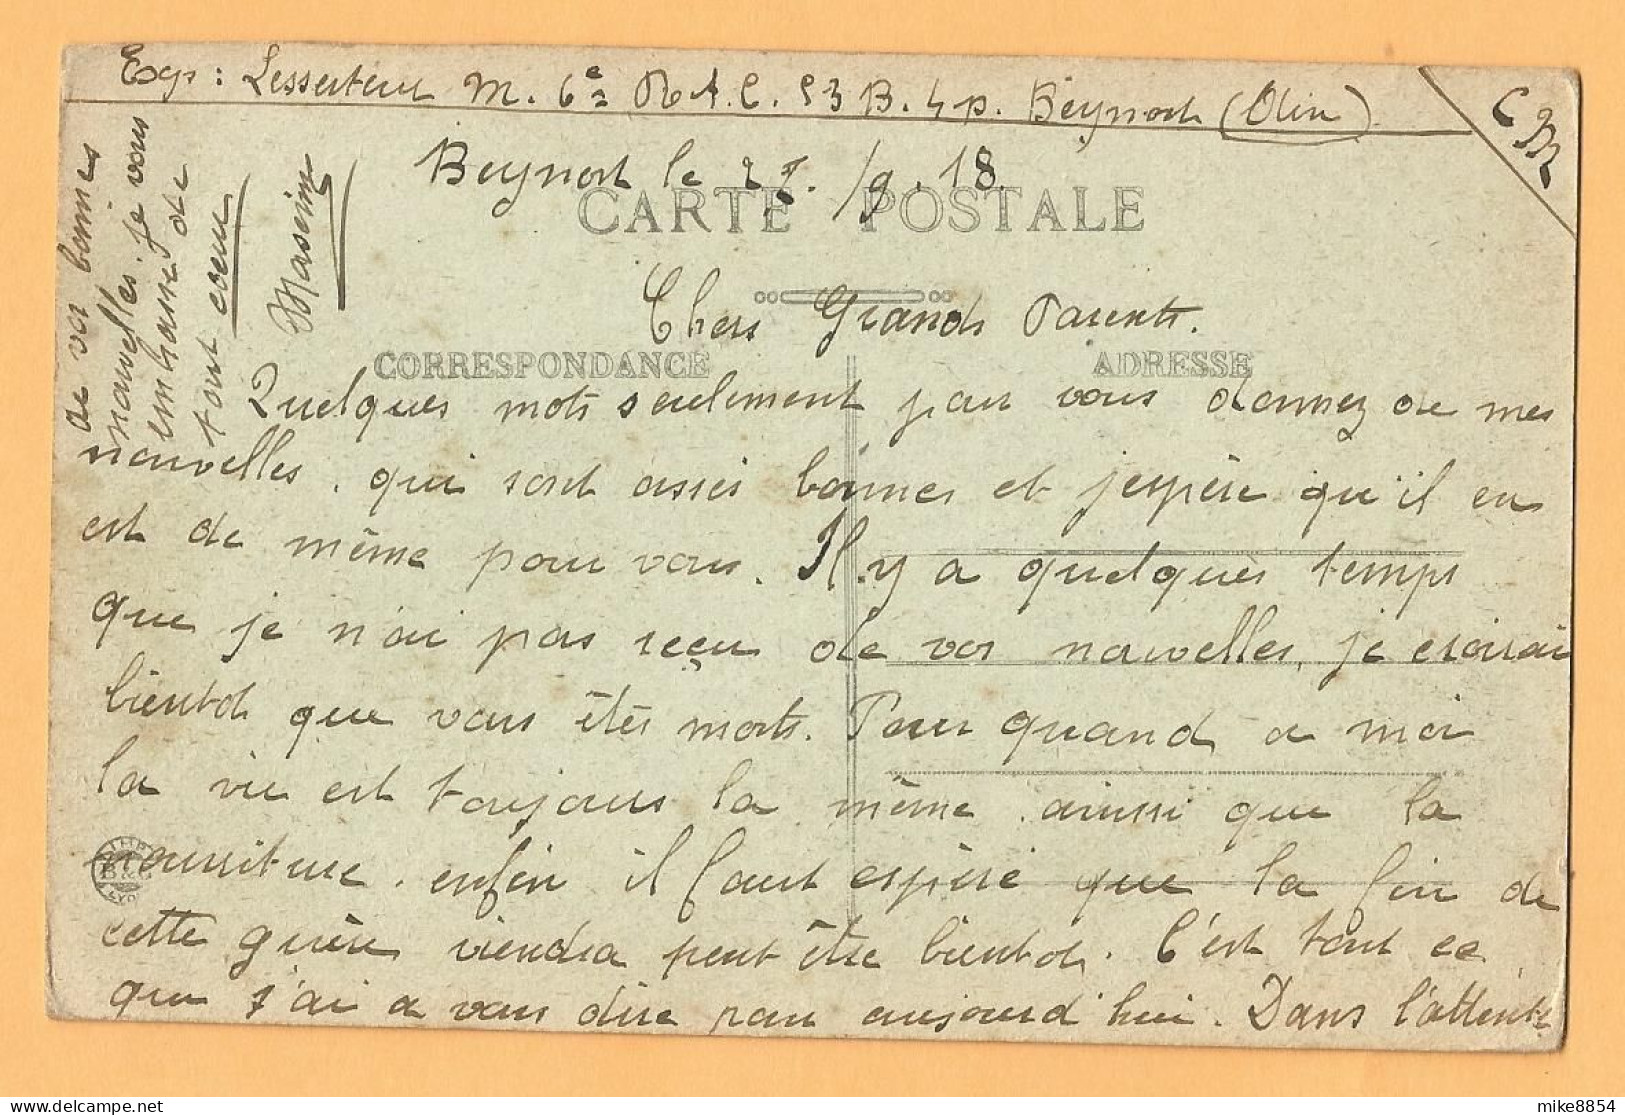 Exp : Lesserteur M. 6e R.A.C. 53 B. 4 p. Beynost (Ain)
C M
Beynost le 27. /9. 18.
CARTE POSTALE
Chers Grands Parents.
CORRESPONDANCE
ADRESSE
Quelques mots seulement pour vous donnez de mes
nouvelles. qui sont assés bonnes et j'espère qu'il en
est de même pour vous. Il y a quelques temps
que je n'ai pas reçu de vos nouvelles, je croirai
bientot que vous êtes morts. Pour quand a moi
la vie est toujours la même ainsi que la
nourriture. enfin il faut espéré que la fin de
cette guère viendra peut être bientot. C'est tout ce
que j'ai a vous dire pour aujourd'hui. Dans l'attente
de vos bonnes
nouvelles. je vous
embrasse de
tout cœur
mike8854